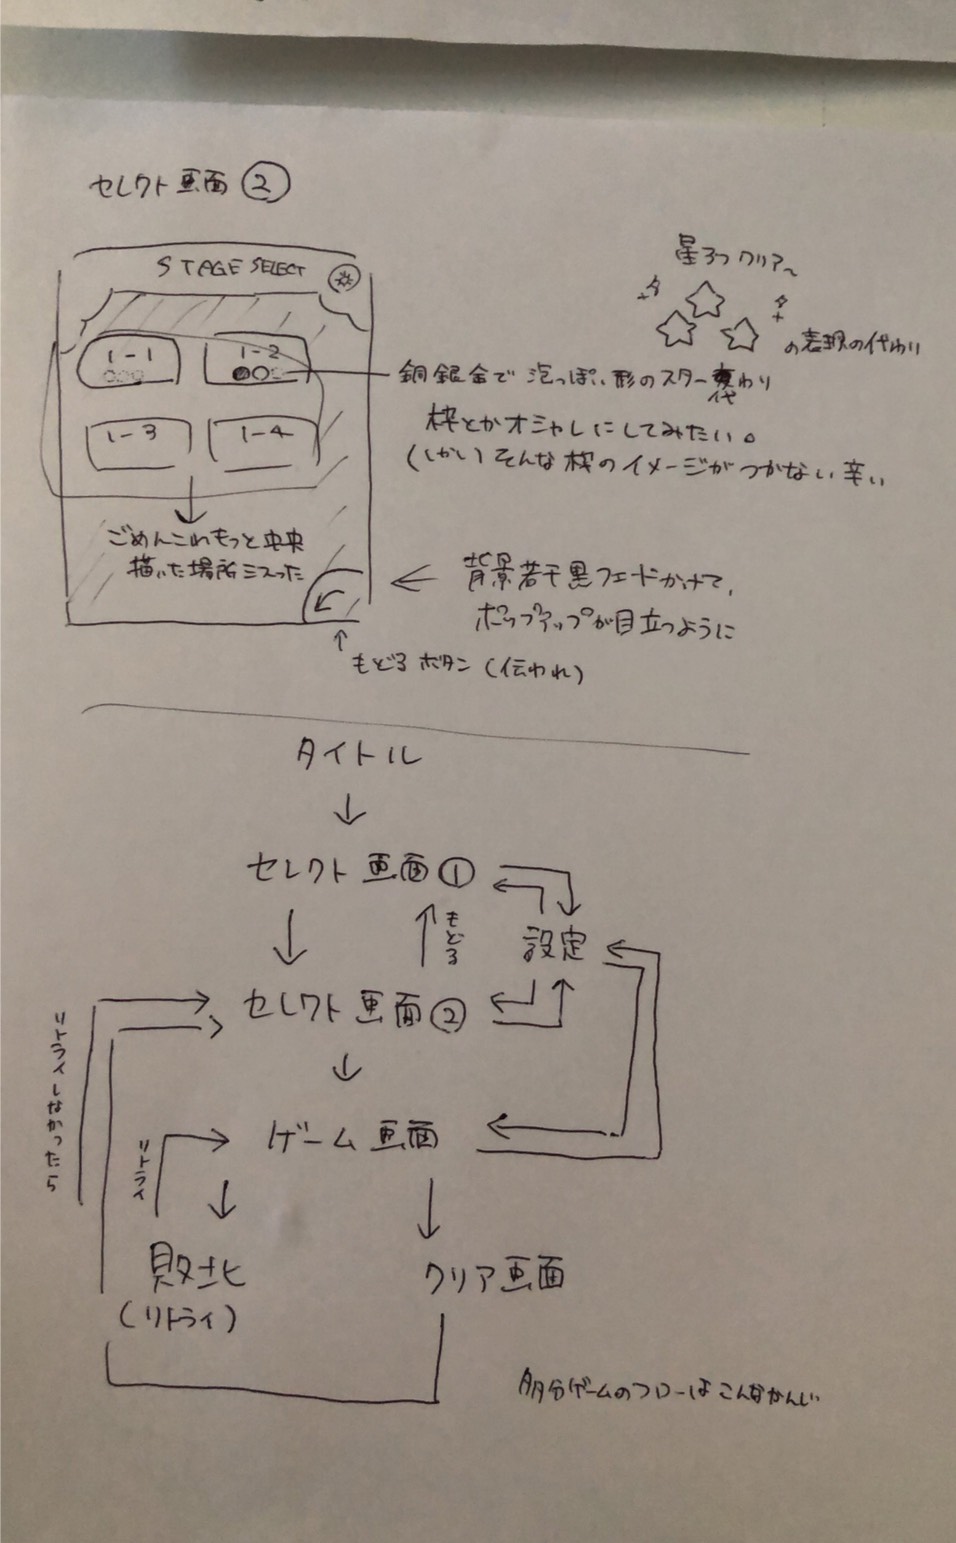 セレクト画面②
STAGE SELECT
1-1
1-2
1-3
1-4
ごめんこれもっと中央
描いた場所ミスった
星3つクリア〜
の表現の代わり
銅銀金で泡っぽい形のスター代わり
枠とかオシャレにしてみたい。
(しかし)そんな枠のイメージがつかない辛い
背景若干黒フェードかけて、
ポップアップが目立つように
もどるボタン(伝われ)
タイトル
セレクト画面①
もどる
設定
セレクト画面②
リトライしなかったら
ゲーム画面
リトライ
敗北
(リトライ)
クリア画面
多分ゲームのフローはこんなかんじ